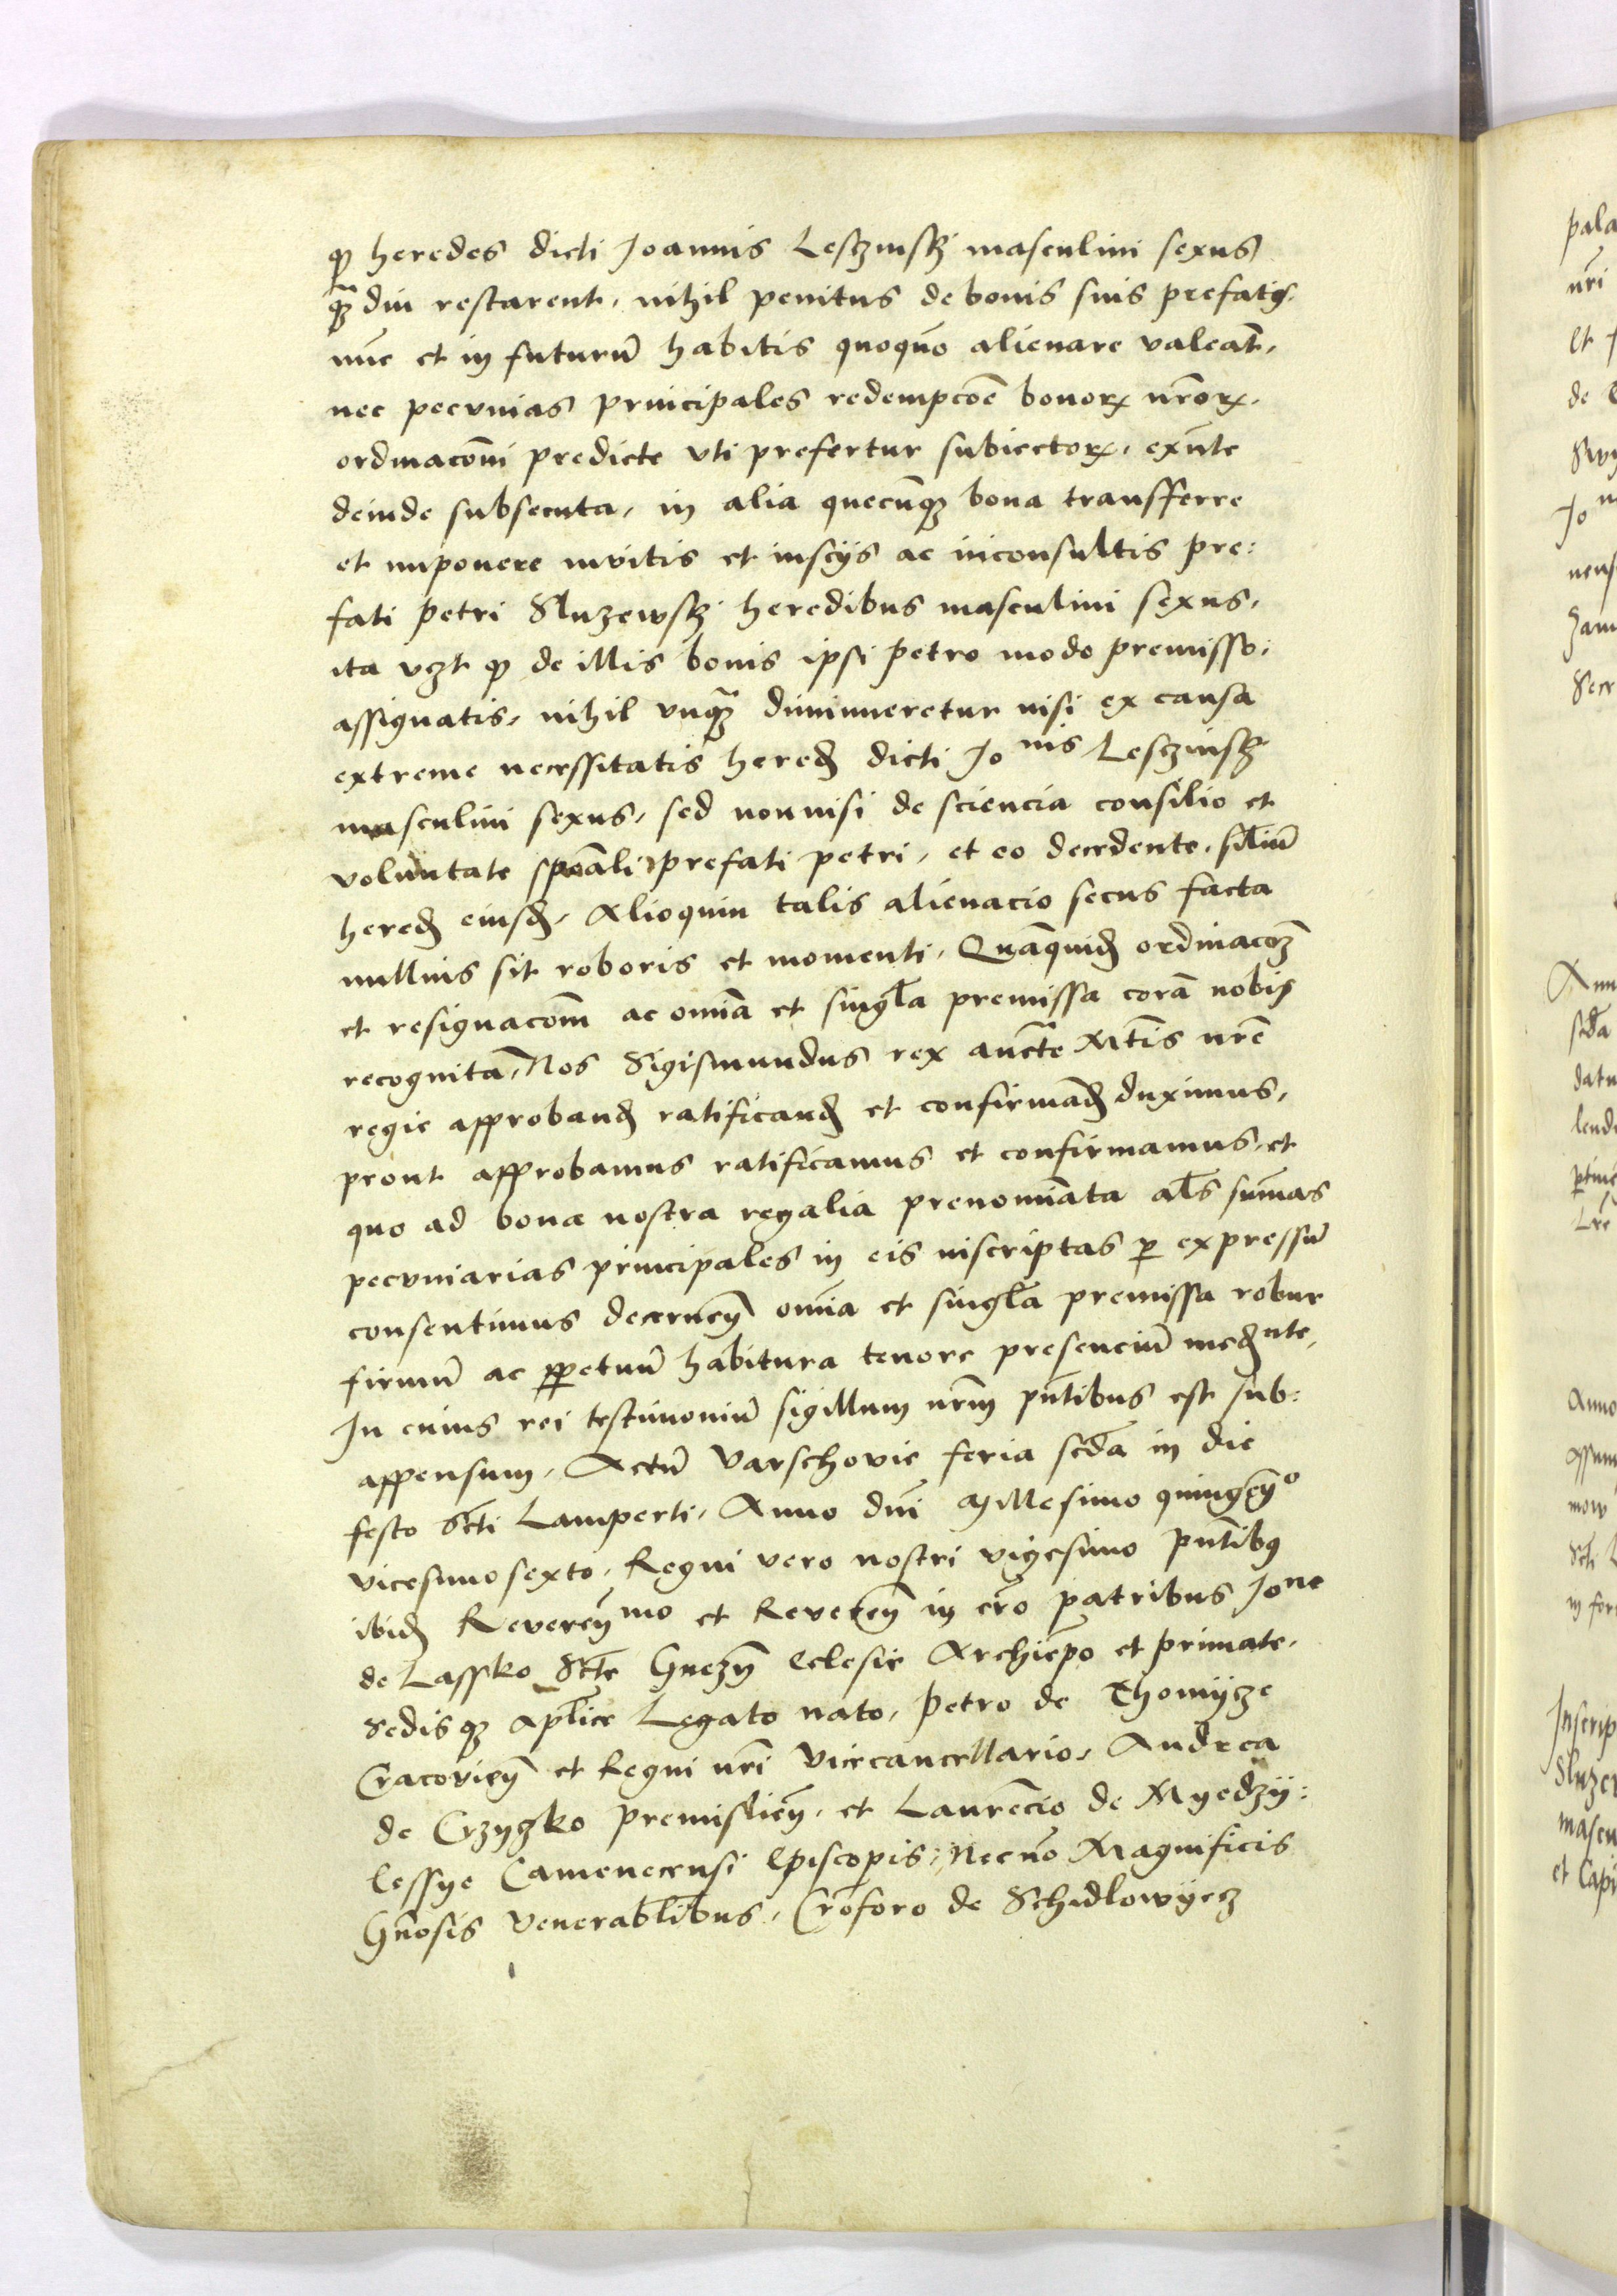 ꝙ heredes dicti Joannis Lesczinskj masculini sexus
qꝫ̃ diu restarent, nihil penitus de bonis suis prefatis
nũc et in futurũ habitis quoquõ alienare valeãt,
nec pecunias principales redempcõe bonoꝝ nr̃oꝝ,
ordinacõni predicte vti prefertur subiectoꝝ, exñte
deinde subsecuta, in alia quecũqꝫ bona transfferre
et imponere invitis et insciis ac inconsultis pre:
fati Petri Sluzewskj heredibus masculini sexus,
ita vꝫt ꝙ de illis bonis ipsi Petro modo premisso:
assignatis, nihil vnqꝫ̃ diminueretur nisi ex causa
extreme necessitatis heređ dicti Jonis Lesczinskj
masculini sexus, sed nonnisi de sciencia consilio et
voluntate speãli prefati Petri, et eo decedente, sĩlium
heređ eiusđ, Alioquin talis alienacio secus facta
nullius sit roboris et momenti, Quãquiđ ordinacõꝫ
et resignacõm ac omĩa et singl̃a premissa corã nobis
recognita, Nos Sigismundus rex auc̃te Mt̃is nr̃e
regie approbanđ ratificanđ et confirmãđ duximus,
prout approbamus ratificamus et confirmamus, et
quo ad bona nostra regalia prenomĩata al̃s sum̃as
pecuniarias principales in eis inscriptas ꝑ expressũ
consentimus decernen̄ omĩa et singl̃a premissa robur
firmũ ac ꝑpetuũ habitura tenore presenciũ međnte,
In cuius rei testimoniũ sigillum nr̃m pñtibus est sub:
appensum, Actũ Varschovie feria scđa in die
festo Sc̃ti Lamperti, Anno dñi Millesimo quingen̄o
vicesimosexto, Regni vero nostri vigesimo pñtibꝰ
ibiđ Reveren̄mo et Reveren̄ in cr̃o patribus Jone
de Lassko Sc̃te Gnezn̄ Eclesie Archiep̃o et primate,
Sedisqꝫ apl̃ice Legato nato, Petro de Thomijcze
Cracovien̄ et Regni nr̃i Vicecancellario, Andrea
de Crzyczko Premislien̄, et Laurẽcio de Myedzij:
lessye Camenecensi Episcopis, Necnõ Magnificis
Gñosis Venerabl̃ibus, Cr̃oforo de Schidlowijecz
pala
nr̃i
Et
de
Jo
nens
Secr
Ann
scđa
datu
lend
Lr̃e
Anno
assum
mow
Sc̃ti L
in for
Inscrip
Sluze
mascu
et Capi